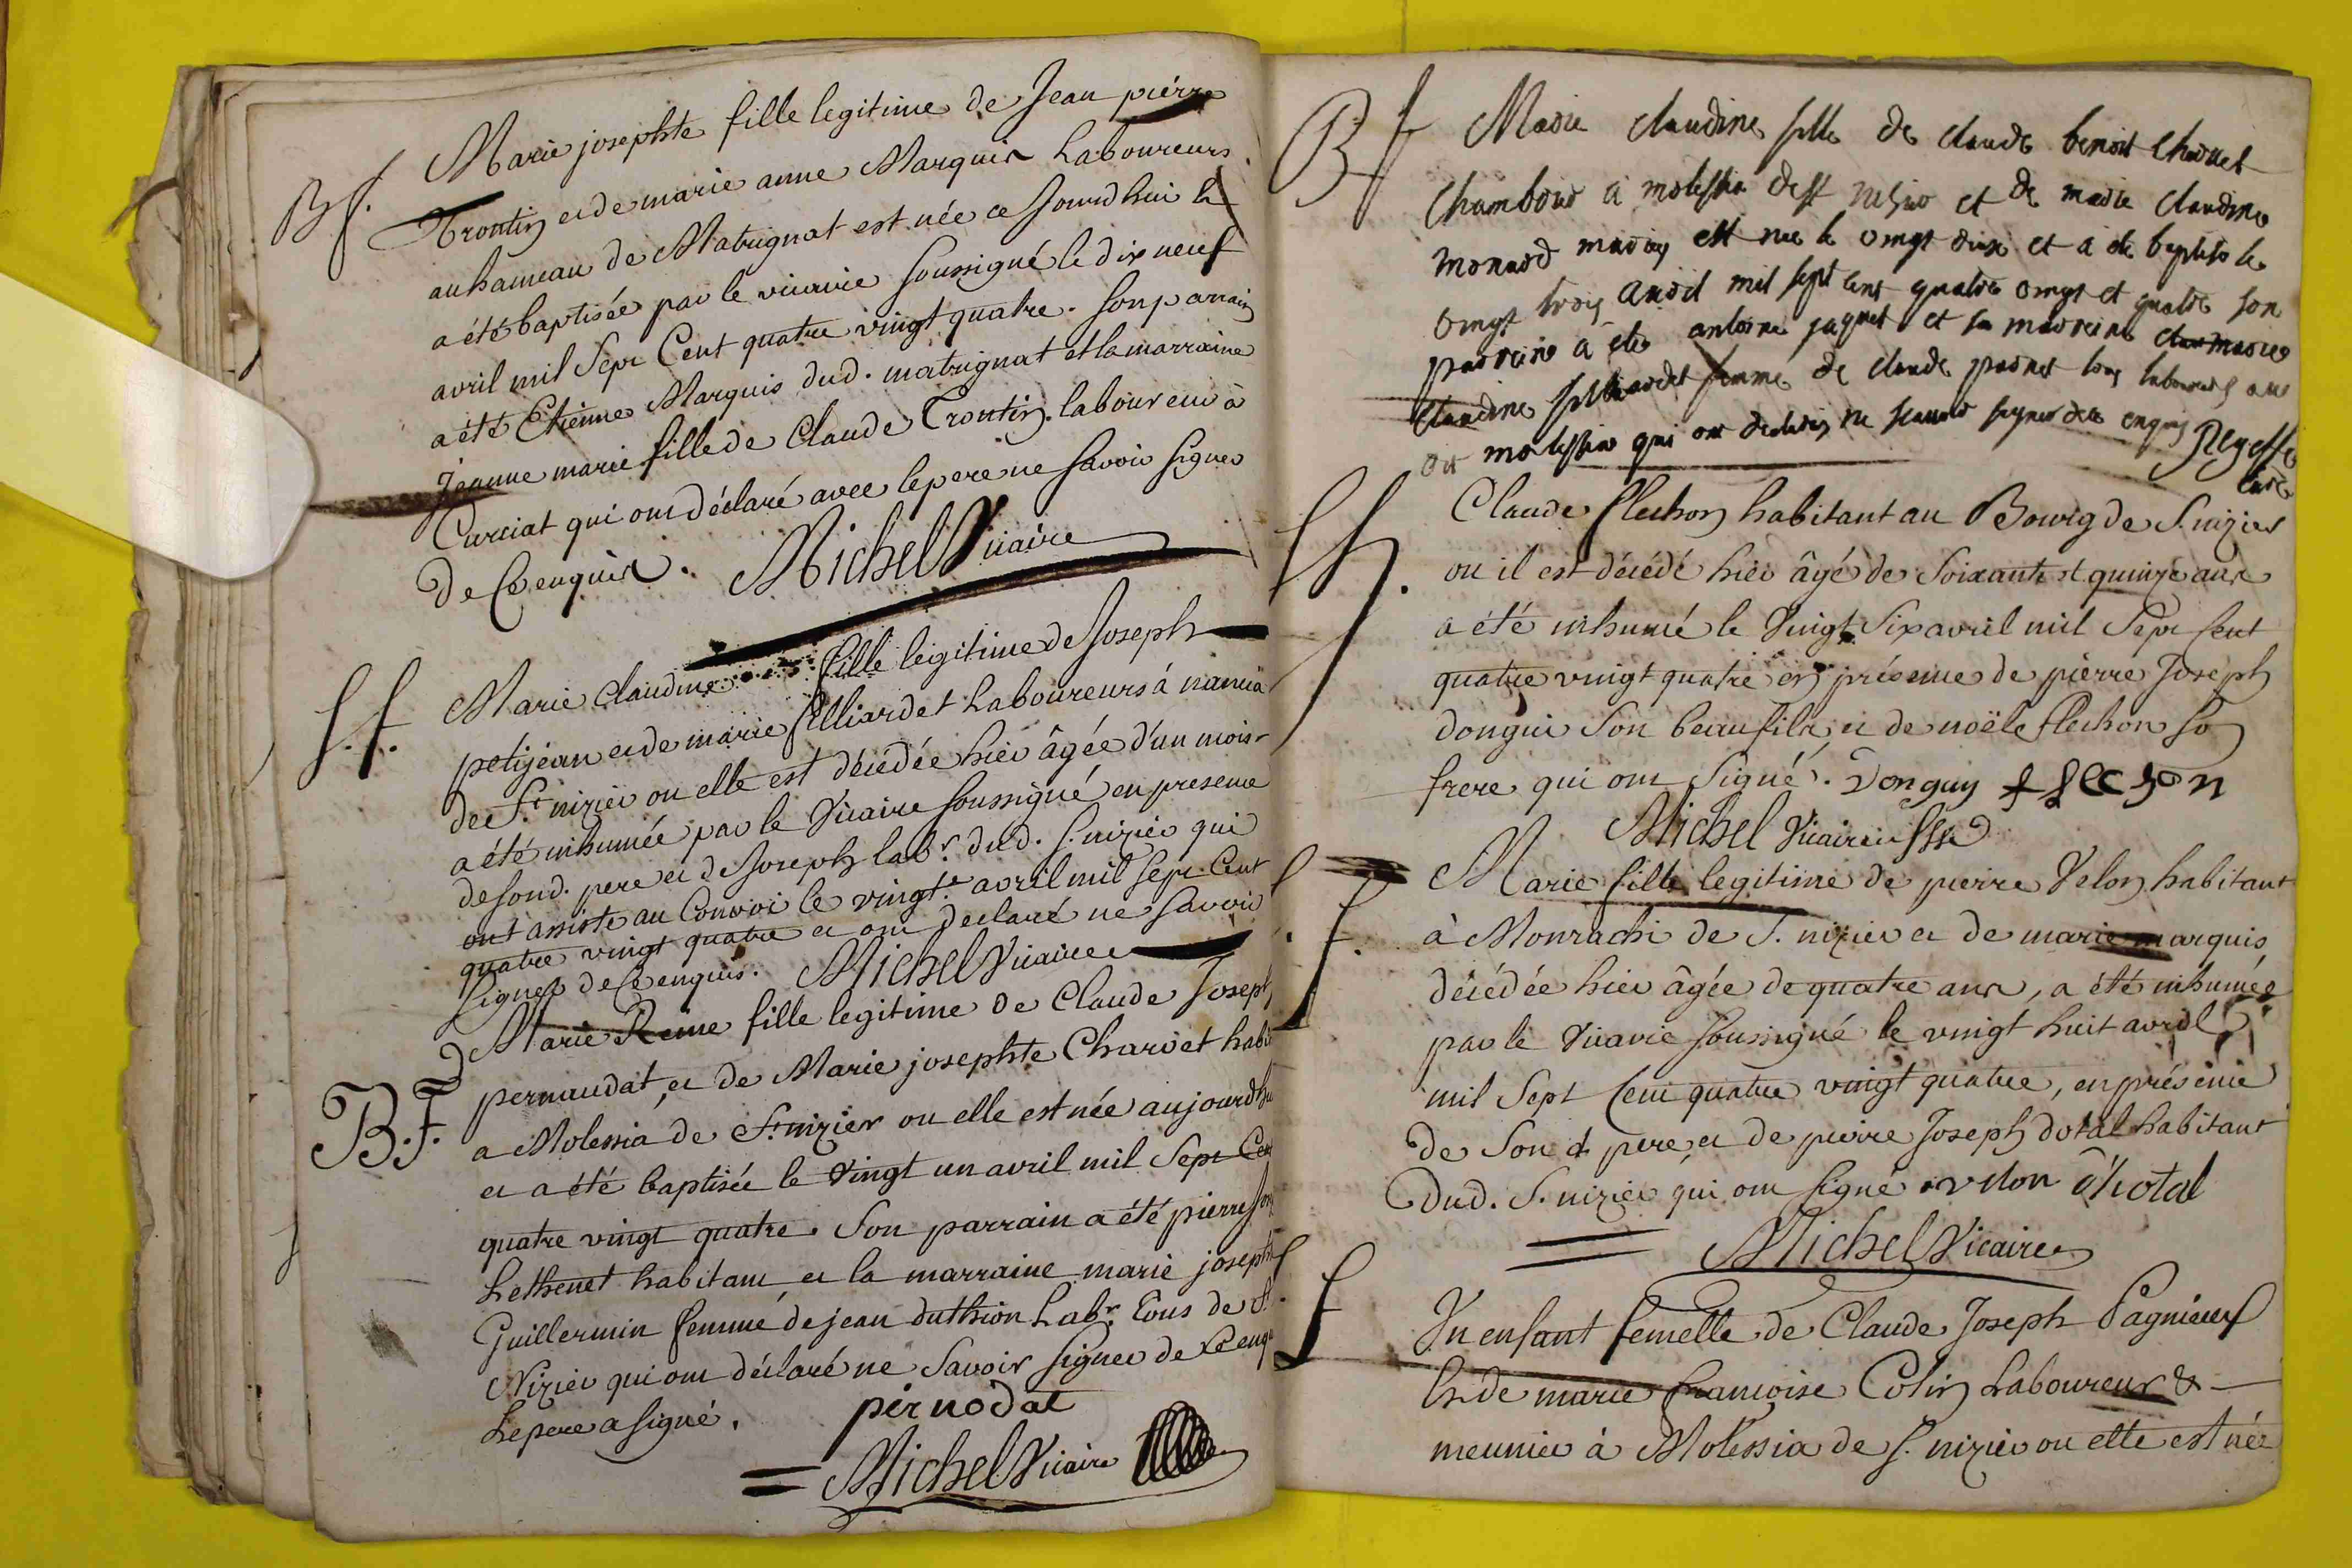 B f.
Marie josephte fille legitime de Jean pierre
Trontin et de marie anne Marquis Laboureurs
au hameau de Matrignat est née ce Jourd'hui et
a été baptisée par le vicaire soussigné le dix neuf
avril mil Sept Cent quatre vingt quatre. Son parrain
a été Etienne Marquis dud. matrignat et la marraine
Jeanne marie fille de Claude Trontin laboureur à
Curciat qui ont déclaré avec le pere ne savoir signer
de ce enquis. Michel Vicaire
S. f.
Marie Claudine fille legitime de Joseph
petijean et de marie filliardet Laboureurs à nancia
de St. nizier ou elle est décédée hier âgée d'un mois
a été inhumée par le Vicaire soussigné en presence
de sond. pere et de Joseph labr. dud. S. nizier qui
ont assisté au Convoi le vingt avril mil Sept Cent
quatre vingt quatre et ont declaré ne savoir
signer de ce enquis. Michel Vicaire
B. F.
Marie Reine fille legitime de Claude Joseph
pernaudat, et de Marie josephte Charvet habit
a Molessia de St. nizier ou elle est née aujourdhu
et a été baptisée le vingt un avril mil Sept Cen
quatre vingt quatre. Son parrain a été pierre
Lethenet habitant et la marraine marie joseph
Guillermin femme de jean duthion Labr. Tous de St.
Nizier qui ont déclaré ne Savoir signer de ce enqu
Le pere a signé. pernodat
Michel Vicaire
B f
Marie claudine fille de claude benoit
Chambard a molessia de st nisier et de marie claudine
monard est nee le vingt deux et a ete baptise le
vingt trois avril mil sept cent quatre vingt et quatre son
parrein a ete antoine jaquet et sa marreine marie
claudine filliardet femme de claude tous laboureurs
molessia qui ont declares ne scavoir signer de ce enquis
curé
S.
Claude flechon habitant au Bourg de S. nizier
ou il est décédé hier âgé de Soixante et quinze ans
a été inhumé le vingt Six avril mil Sept Cent
quatre vingt quatre en présence de pierre Joseph
dongui Son beau fils, et de noële flechon So
frere qui ont Signé. Donguy flechon
Michel Vicaire
S. f.
Marie fille legitime de pierre Velon habitant
à Monrachi de S. nizier et de marie marquis
décédée hier âgée de quatre ans, a été inhumée
par le Vicaire soussigné le vingt huit avril
mil Sept Cent quatre vingt quatre, en présence
de Son d pere, et de pierre Joseph dotal habitant
Dud. S. nizier qui ont signé. velon dhotal
Michel Vicaire
S. f
Un enfant femelle de Claude Joseph Pagnieux
Et de marie francoise Colin Laboureur &
meunier à Molessia de S. nizier ou elle est née